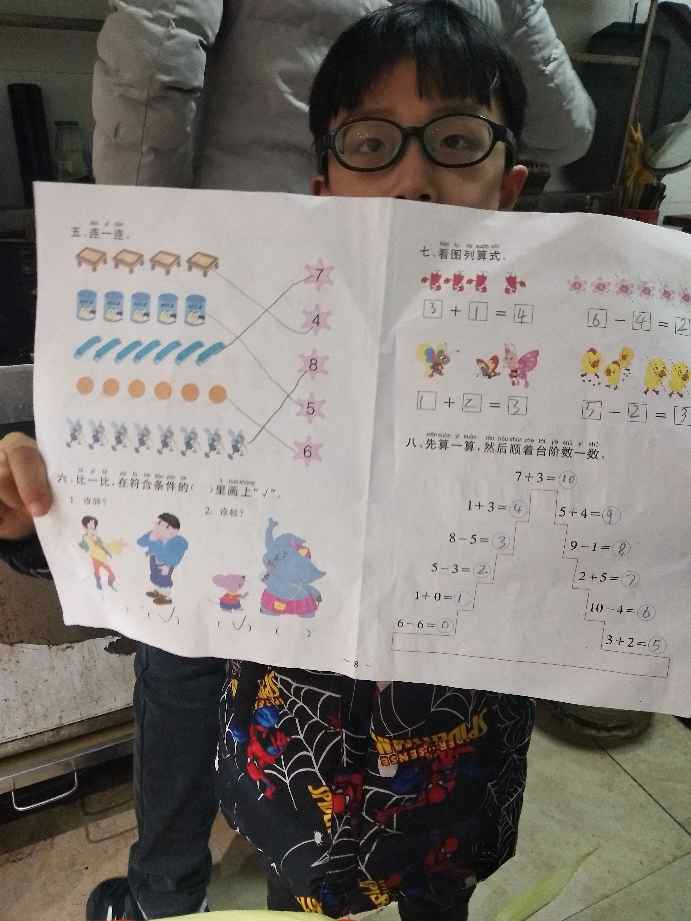 五、连一连。
7
4
8
5
6
六、比一比，在符合条件的( )里画上“√”。
1. 谁胖？ 2. 谁轻？
( ) (√) (√) ( )
七、看图列算式。
3 + 1 = 4 6 - 4 = 2
1 + 2 = 3 5 - 2 = 3
八、先算一算，然后顺着台阶数一数。
7+3=10
1+3=4 5+4=9
8-5=3 9-1=8
5-3=2 2+5=7
1+0=1 10-4=6
6-6=0 3+2=5
8